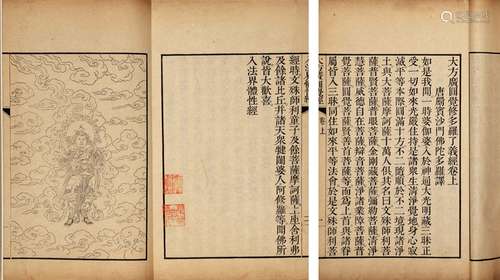 大方廣圓覺修多羅了義經卷上
唐罽賓沙門佛陀多羅譯
如是我聞一時婆伽婆入於神通大光明藏三昧正
受一切如來光嚴住持是諸眾生清淨覺地身心寂
滅平等本際圓滿十方不二隨順於不二境現諸淨
土與大菩薩摩訶薩十萬人俱其名曰文殊師利菩
薩普賢菩薩普眼菩薩金剛藏菩薩彌勒菩薩清淨
慧菩薩威德自在菩薩辯音菩薩淨諸業障菩薩普
覺菩薩圓覺菩薩賢善首菩薩等而為上首與諸眷
屬皆入三昧同住如來平等法會於是文殊師利菩
卷上
經時文殊師利童子及餘菩薩摩訶薩上座舍利弗
及餘諸比丘并諸天眾犍闥婆人阿修羅等聞佛所
說皆大歡喜
入法界體性經